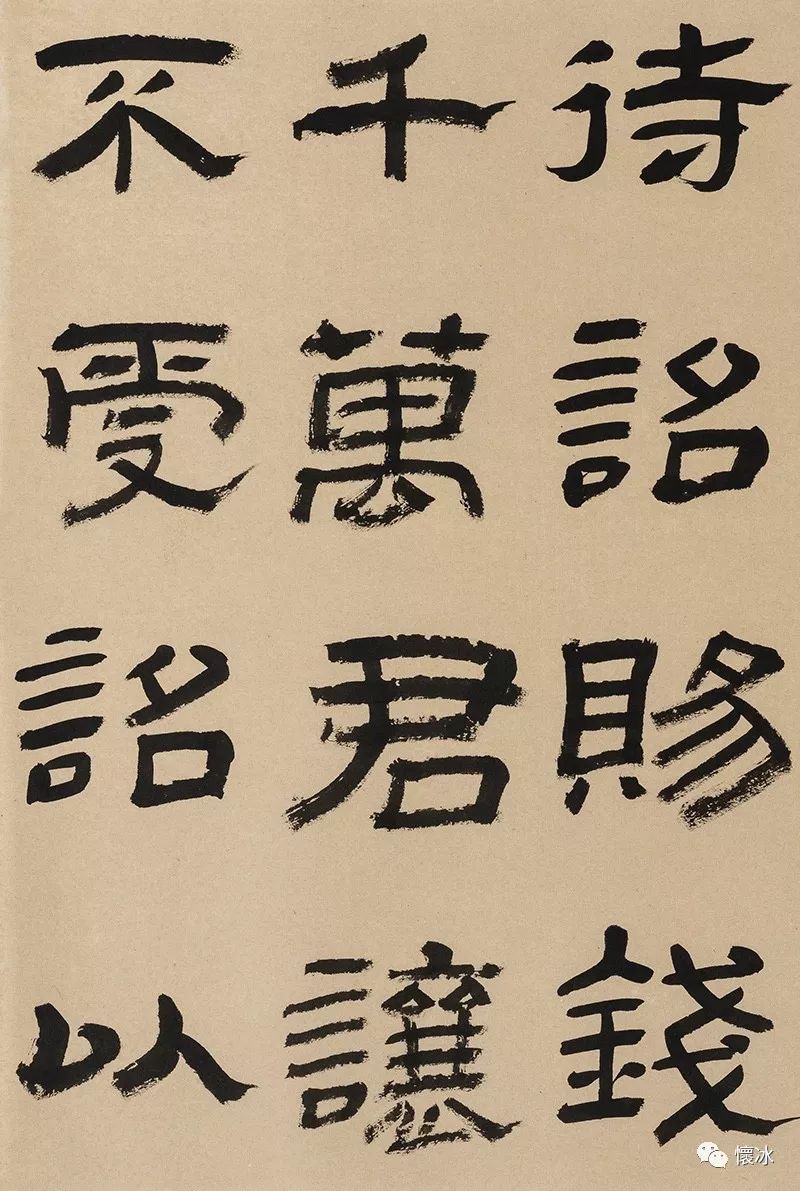 待詔賜錢
千萬君讓
不受詔以
懷冰